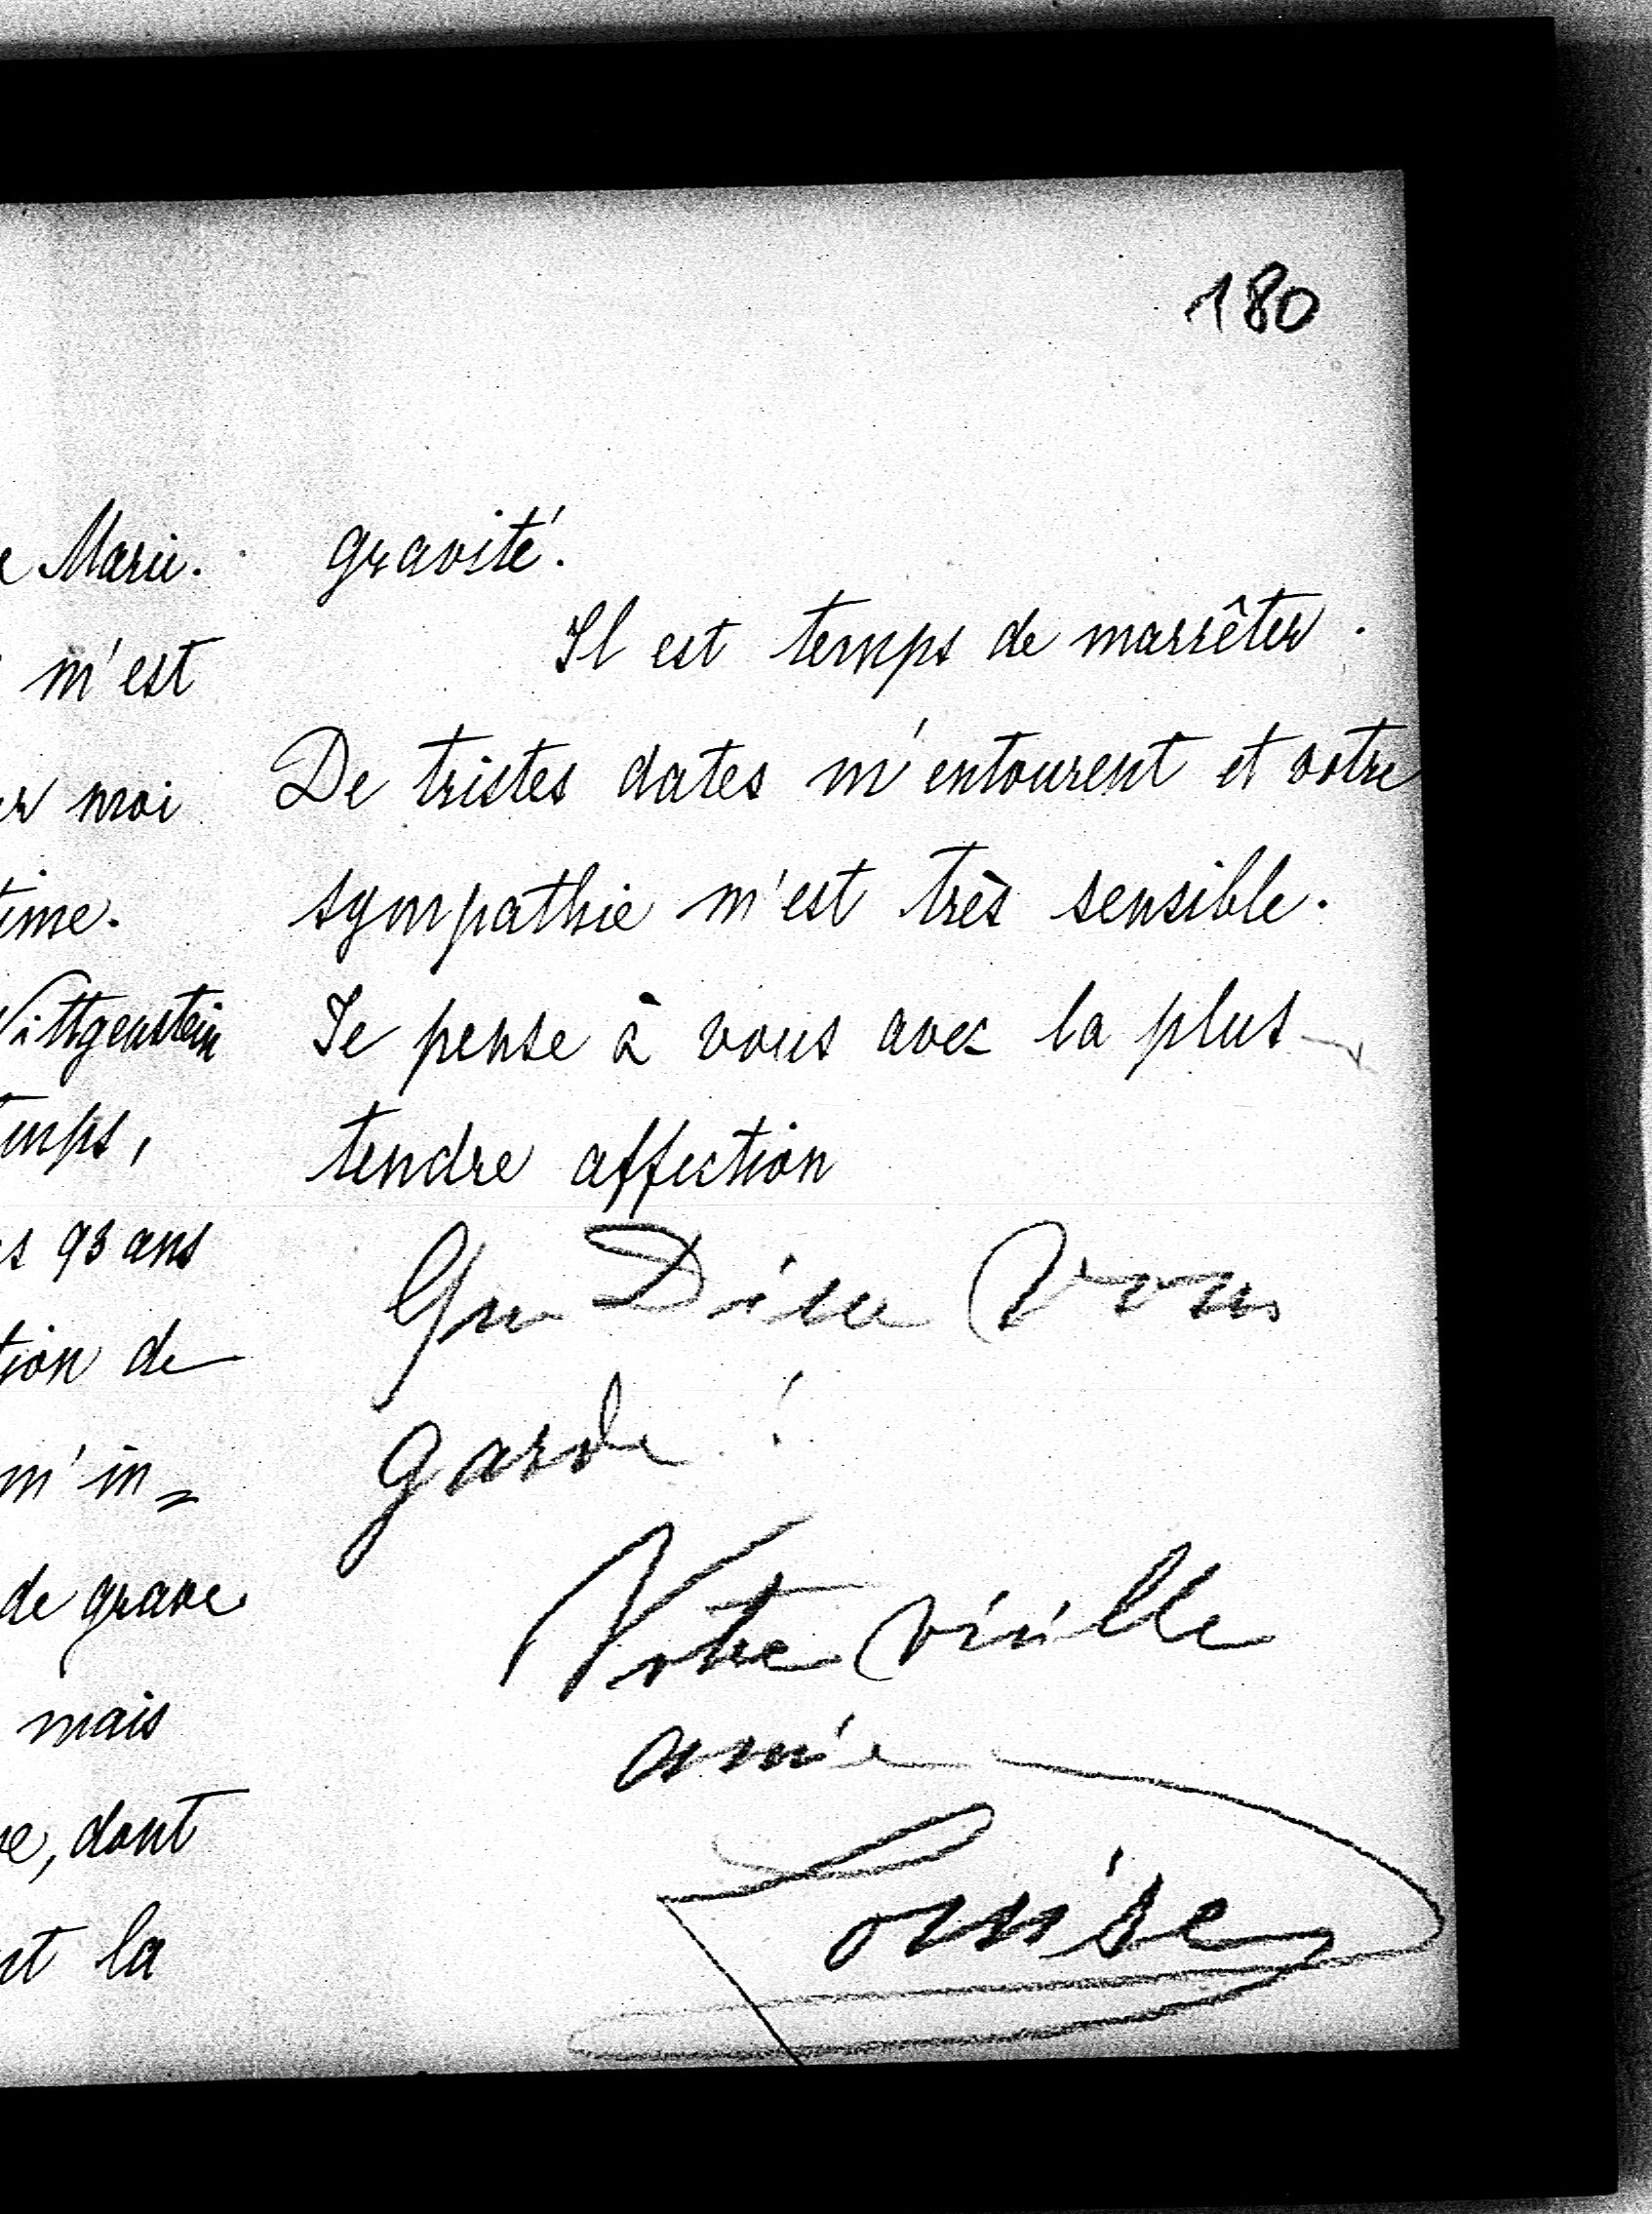 180
e Marie.
m'est
er moi
time.
Wittgenstein
temps,
s 93 ans
tion de
m'in=
de grave
mais
e, dont
nt la
gravité.
Il est temps de marrêter.
De tristes dates m'entourent et votre
sympathie m'est très sensible.
Je pense à vous avec la plus
tendre affection
Que Dieu vous
garde !
Votre vieille
amie
Louise